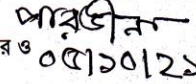 পারভীনা
র ও ০৫।১০।২০